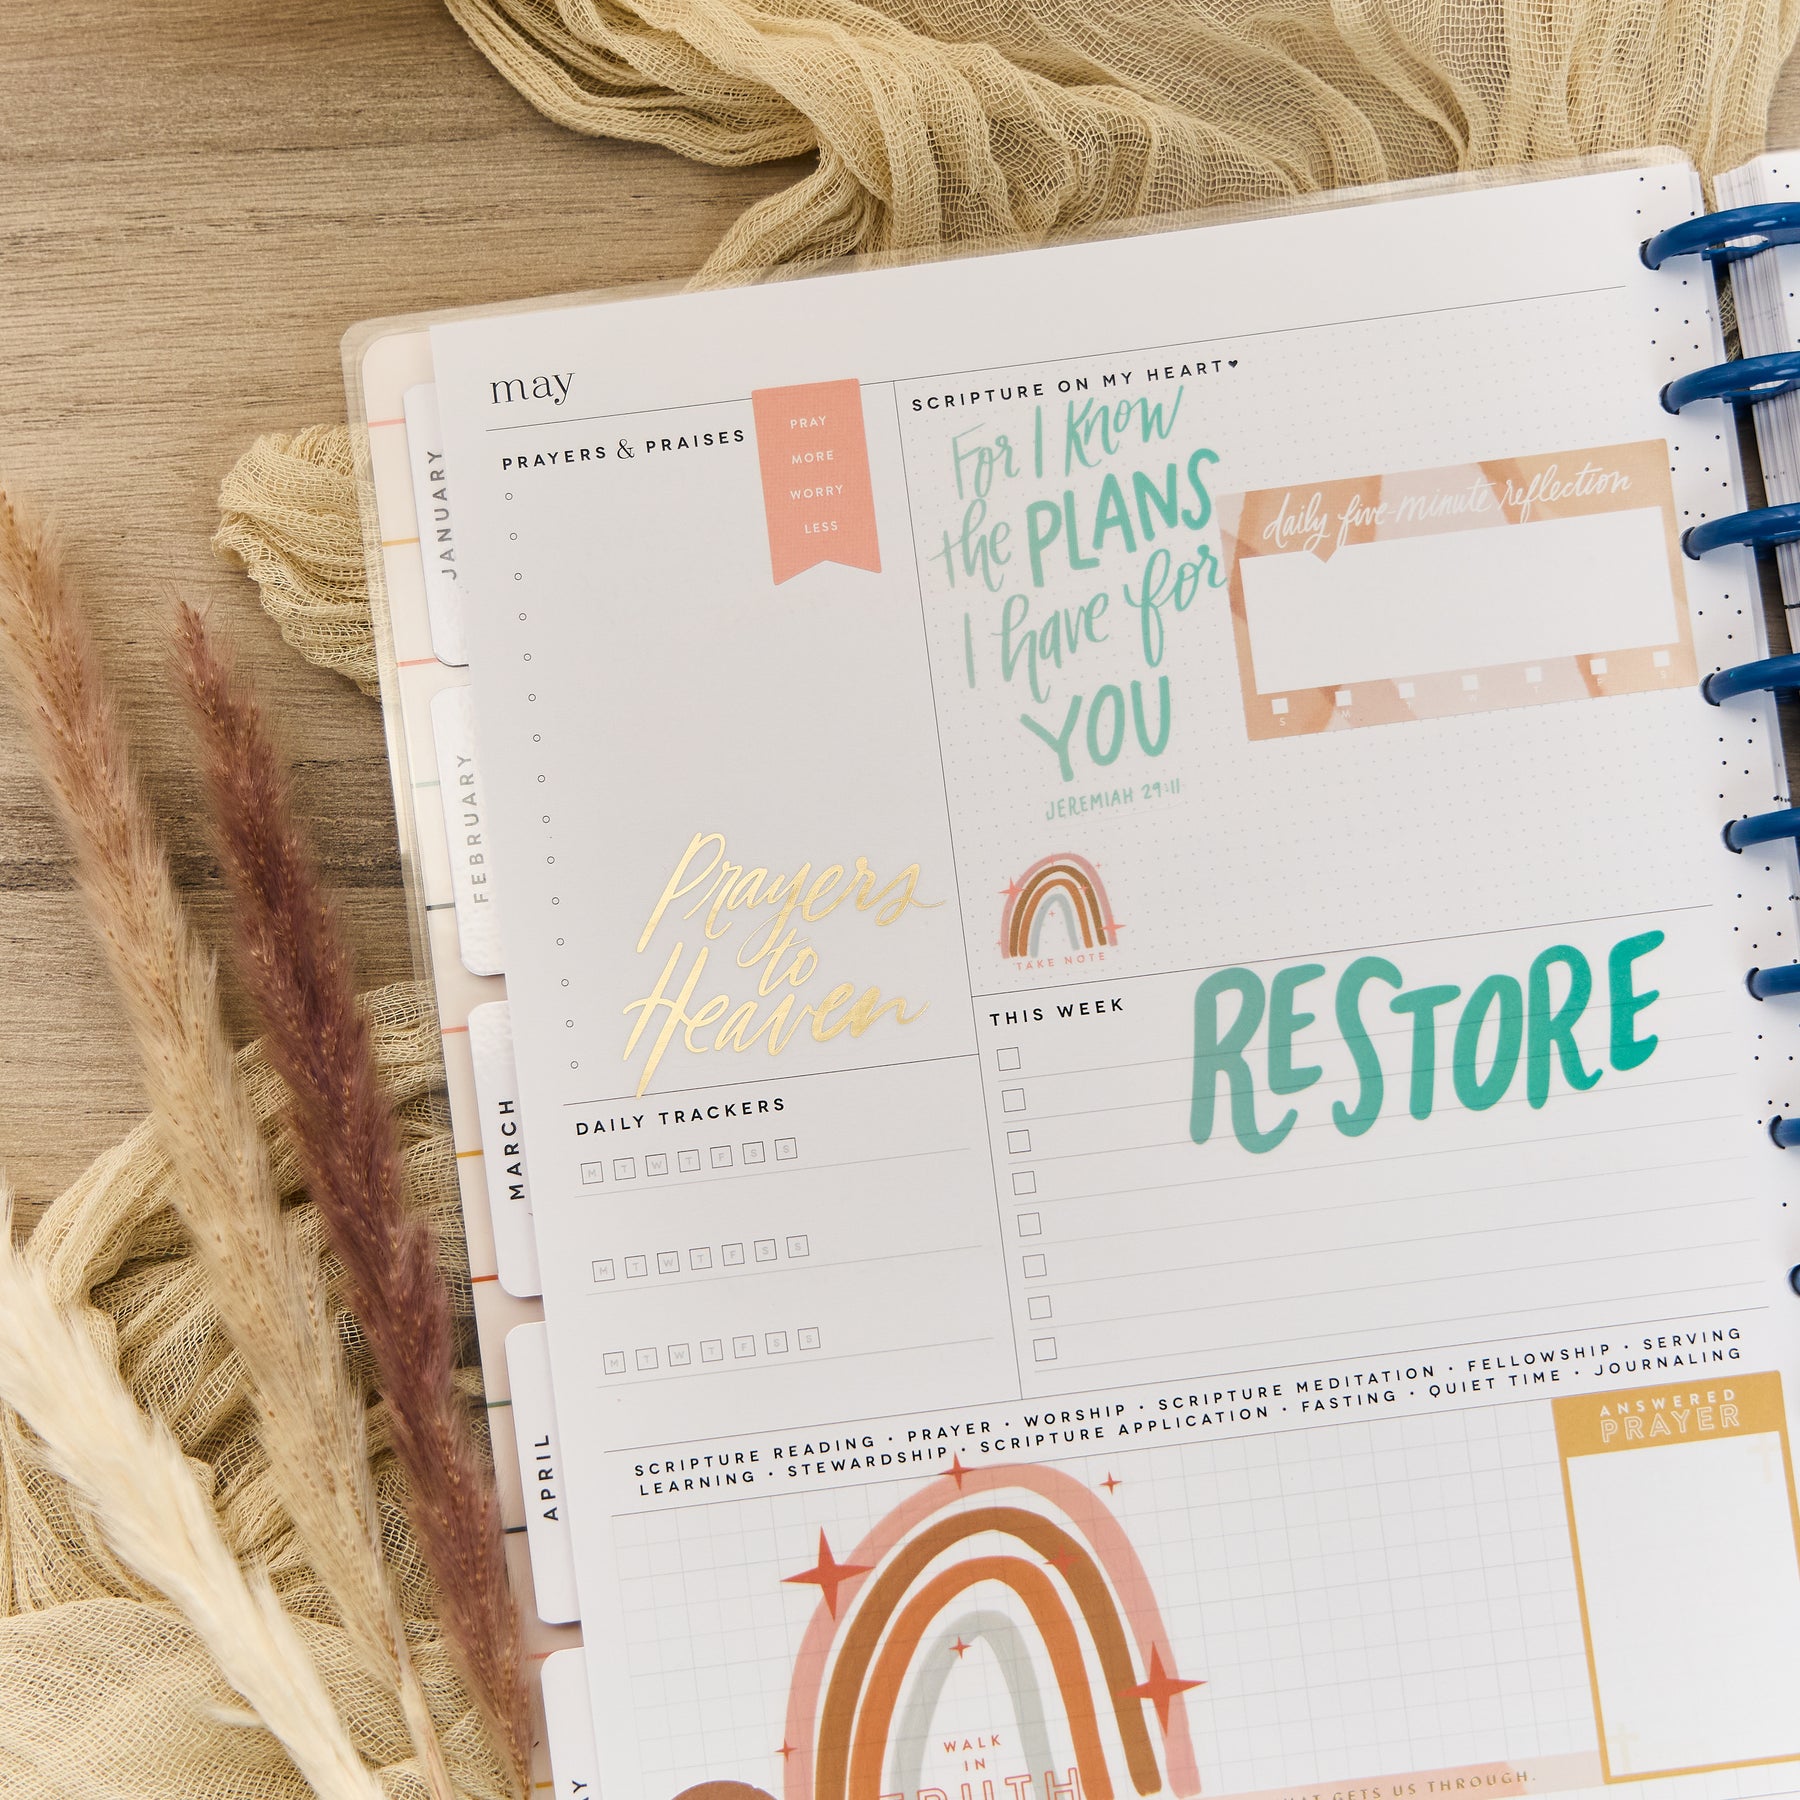 may
PRAYERS & PRAISES
PRAY
MORE
WORRY
LESS
Prayers
to
Heaven
SCRIPTURE ON MY HEART♥
For I Know
the PLANS
I have for
YOU
JEREMIAH 29:11
daily five-minute reflection
S M T W T F S
TAKE NOTE
DAILY TRACKERS
M T W T F S S
M T W T F S S
M T W T F S S
THIS WEEK
RESTORE
SCRIPTURE READING • PRAYER • WORSHIP • SCRIPTURE MEDITATION • FELLOWSHIP • SERVING
LEARNING • STEWARDSHIP • SCRIPTURE APPLICATION • FASTING • QUIET TIME • JOURNALING
ANSWERED
PRAYER
WALK
IN
TRUTH
GETS US THROUGH.
JANUARY
FEBRUARY
MARCH
APRIL